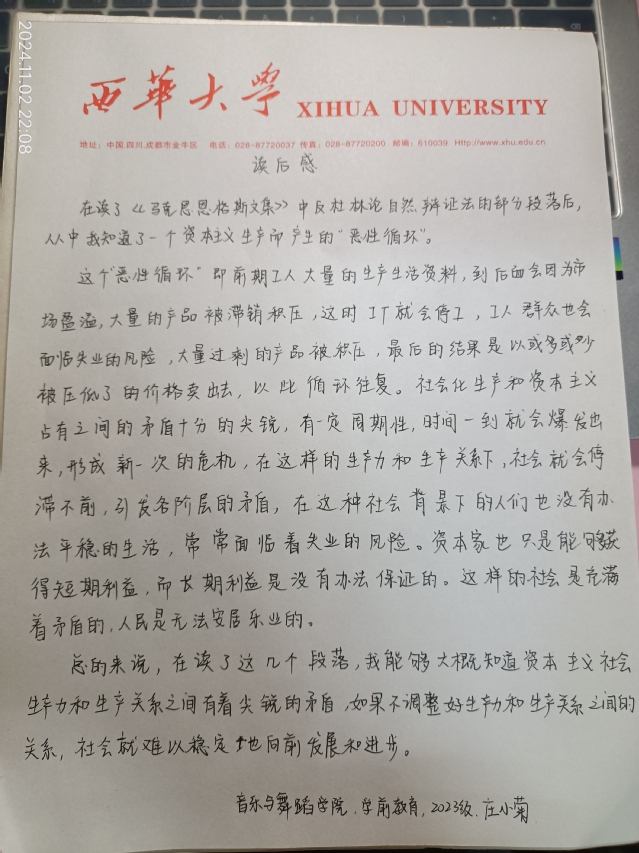 2024.11.02 22:08
西華大學 XIHUA UNIVERSITY
地址：中国.四川.成都市金牛区 电话：028-87720037 传真：028-87720200 邮编：610039 Http://www.xhu.edu.cn
读后感
在读了《马克思恩格斯文集》中反杜林论自然辩证法的部分段落后，
从中我知道了一个资本主义生产而产生的“恶性循环”。
这个“恶性循环”即前期工人大量的生产生活资料，到后面会因为市
场盈溢，大量的产品被滞销积压，这时工厂就会停工，工人群众也会
面临失业的风险，大量过剩的产品被积压，最后的结果是以或多或少
被压低了的价格卖出去，以此循环往复。社会化生产和资本主义
占有之间的矛盾十分的尖锐，有一定周期性，时间一到就会爆发出
来，形成新一次的危机，在这样的生产力和生产关系下，社会就会停
滞不前，引发各阶层的矛盾，在这种社会背景下的人们也没有办
法平稳的生活，常常面临着失业的风险。资本家也只是能够获
得短期利益，而长期利益是没有办法保证的。这样的社会是充满
着矛盾的，人民是无法安居乐业的。
总的来说，在读了这几个段落，我能够大概知道资本主义社会
生产力和生产关系之间有着尖锐的矛盾，如果不调整好生产力和生产关系之间的
关系，社会就难以稳定地向前发展和进步。
音乐与舞蹈学院.学前教育，2023级.庄小菊